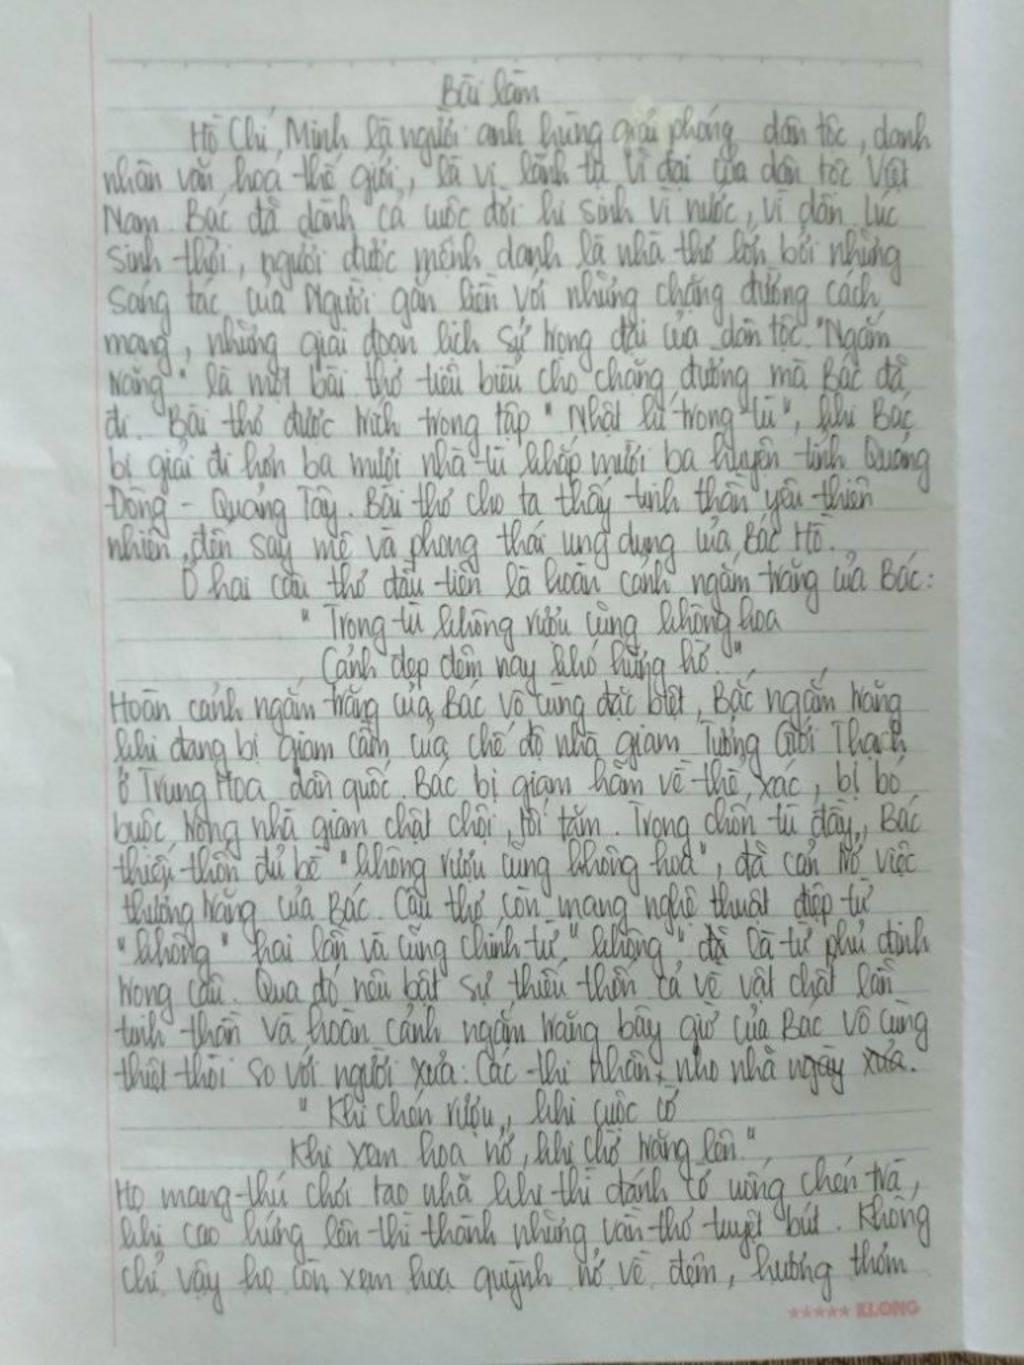 Bài làm
Hồ Chí Minh là người anh hùng giải phóng dân tộc, danh
nhân văn hoá thế giới, là vị lãnh tụ vĩ đại của dân tộc Việt
Nam. Bác đã dành cả cuộc đời hi sinh vì nước, vì dân. Lúc
sinh thời, người được mệnh danh là nhà thơ lớn bởi những
sáng tác của Người gắn liền với những chặng đường cách
mạng, những giai đoạn lịch sử trọng đại của dân tộc. "Ngắm
trăng" là một bài thơ tiêu biểu cho chặng đường mà Bác đã
đi. Bài thơ được trích trong tập "Nhật kí trong tù", khi Bác
bị giải đi hơn ba mươi nhà tù khắp mười ba huyện tỉnh Quảng
Đông - Quảng Tây. Bài thơ cho ta thấy tinh thần yêu thiên
nhiên đến say mê và phong thái ung dung của Bác Hồ.
Ở hai câu thơ đầu tiên là hoàn cảnh ngắm trăng của Bác:
"Trong tù không rượu cũng không hoa
Cảnh đẹp đêm nay khó hững hờ."
Hoàn cảnh ngắm trăng của Bác vô cùng đặc biệt, Bác ngắm trăng
khi đang bị giam cầm của chế độ nhà giam Tưởng Giới Thạch
ở Trung Hoa dân quốc. Bác bị giam hãm về thể xác, bị bó
buộc trong nhà giam chật chội, tối tăm. Trong chốn tù đầy, Bác
thiếu thốn đủ bề "không rượu cũng không hoa", đã cản trở việc
thưởng trăng của Bác. Câu thơ còn mang nghệ thuật điệp từ
"không" hai lần và cũng chính từ "không" đã là từ phủ định
trong câu. Qua đó nêu bật sự thiếu thốn cả về vật chất lẫn
tinh thần và hoàn cảnh ngắm trăng bây giờ của Bác vô cùng
thiệt thòi so với người xưa: Các thi nhân, nho nhà ngày xưa.
"Khi chén rượu, khi cuộc cờ
Khi xem hoa nở, khi chờ trăng lên"
Họ mang thú chơi tao nhã khi thì đánh cờ uống chén trà,
khi cao hứng lên thì thành những vần thơ tuyệt bút. Không
chỉ vậy họ còn xem hoa quỳnh nở về đêm, hương thơm
★★★★★ KLONG